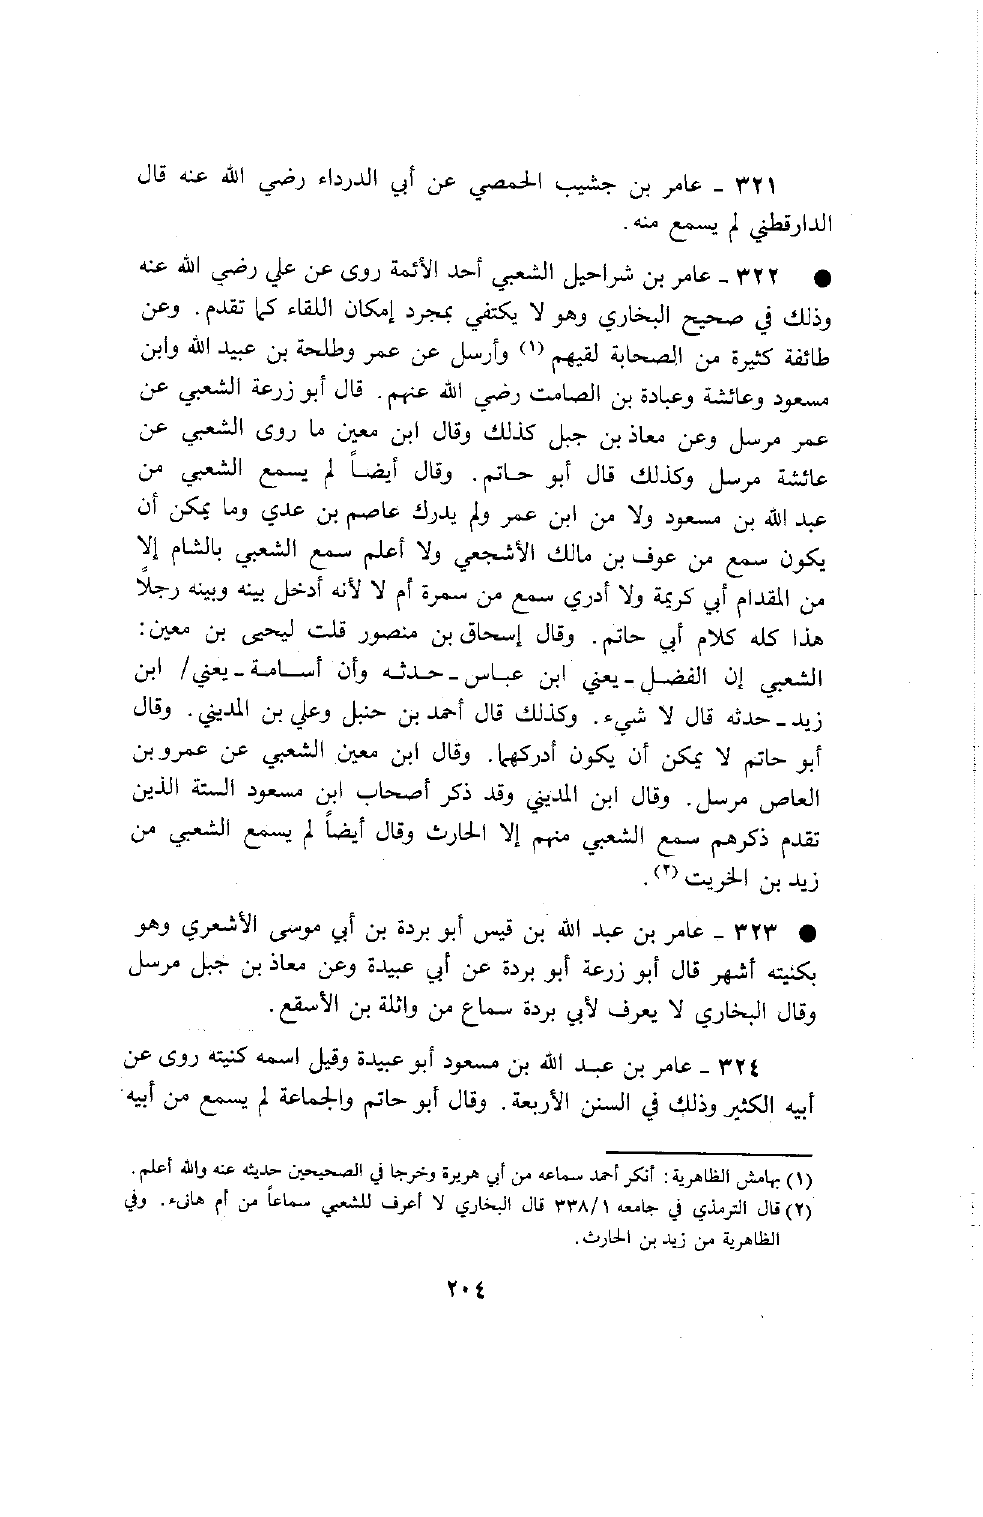 ٣٢١ ـ عامر بن جشيب الحمصي عن أبي الدرداء رضي الله عنه قال
الدارقطني لم يسمع منه.
● ٣٢٢ ـ عامر بن شراحيل الشعبي أحد الأئمة روى عن علي رضي الله عنه
وذلك في صحيح البخاري وهو لا يكتفي بمجرد إمكان اللقاء كما تقدم. وعن
طائفة كثيرة من الصحابة لقيهم (١) وأرسل عن عمر وطلحة بن عبيد الله وابن
مسعود وعائشة وعبادة بن الصامت رضي الله عنهم. قال أبو زرعة الشعبي عن
عمر مرسل وعن معاذ بن جبل كذلك وقال ابن معين ما روى الشعبي عن
عائشة مرسل وكذلك قال أبو حاتم. وقال أيضاً لم يسمع الشعبي من
عبد الله بن مسعود ولا من ابن عمر ولم يدرك عاصم بن عدي وما يمكن أن
يكون سمع من عوف بن مالك الأشجعي ولا أعلم سمع الشعبي بالشام إلا
من المقدام أبي كريمة ولا أدري سمع من سمرة أم لا لأنه أدخل بينه وبينه رجلاً
هذا كله كلام أبي حاتم. وقال إسحاق بن منصور قلت ليحيى بن معين:
الشعبي إن الفضل ـ يعني ابن عباس ـ حدثه وأن أسامة ـ يعني/ ابن
زيد ـ حدثه قال لا شيء. وكذلك قال أحمد بن حنبل وعلي بن المديني. وقال
أبو حاتم لا يمكن أن يكون أدركهما. وقال ابن معين الشعبي عن عمرو بن
العاص مرسل. وقال ابن المديني وقد ذكر أصحاب ابن مسعود الستة الذين
تقدم ذكرهم سمع الشعبي منهم إلا الحارث وقال أيضاً لم يسمع الشعبي من
زيد بن الخريت (٢).
● ٣٢٣ ـ عامر بن عبد الله بن قيس أبو بردة بن أبي موسى الأشعري وهو
بكنيته أشهر قال أبو زرعة أبو بردة عن أبي عبيدة وعن معاذ بن جبل مرسل
وقال البخاري لا يعرف لأبي بردة سماع من واثلة بن الأسقع.
٣٢٤ ـ عامر بن عبد الله بن مسعود أبو عبيدة وقيل اسمه كنيته روى عن
أبيه الكثير وذلك في السنن الأربعة. وقال أبو حاتم والجماعة لم يسمع من أبيه
(١) بهامش الظاهرية: أنكر أحمد سماعه من أبي هريرة وخرجا في الصحيحين حديثه عنه والله أعلم.
(٢) قال الترمذي في جامعه ٣٣٨/١ قال البخاري لا أعرف للشعبي سماعاً من أم هانىء. وفي
الظاهرية من زيد بن الحارث.
٢٠٤